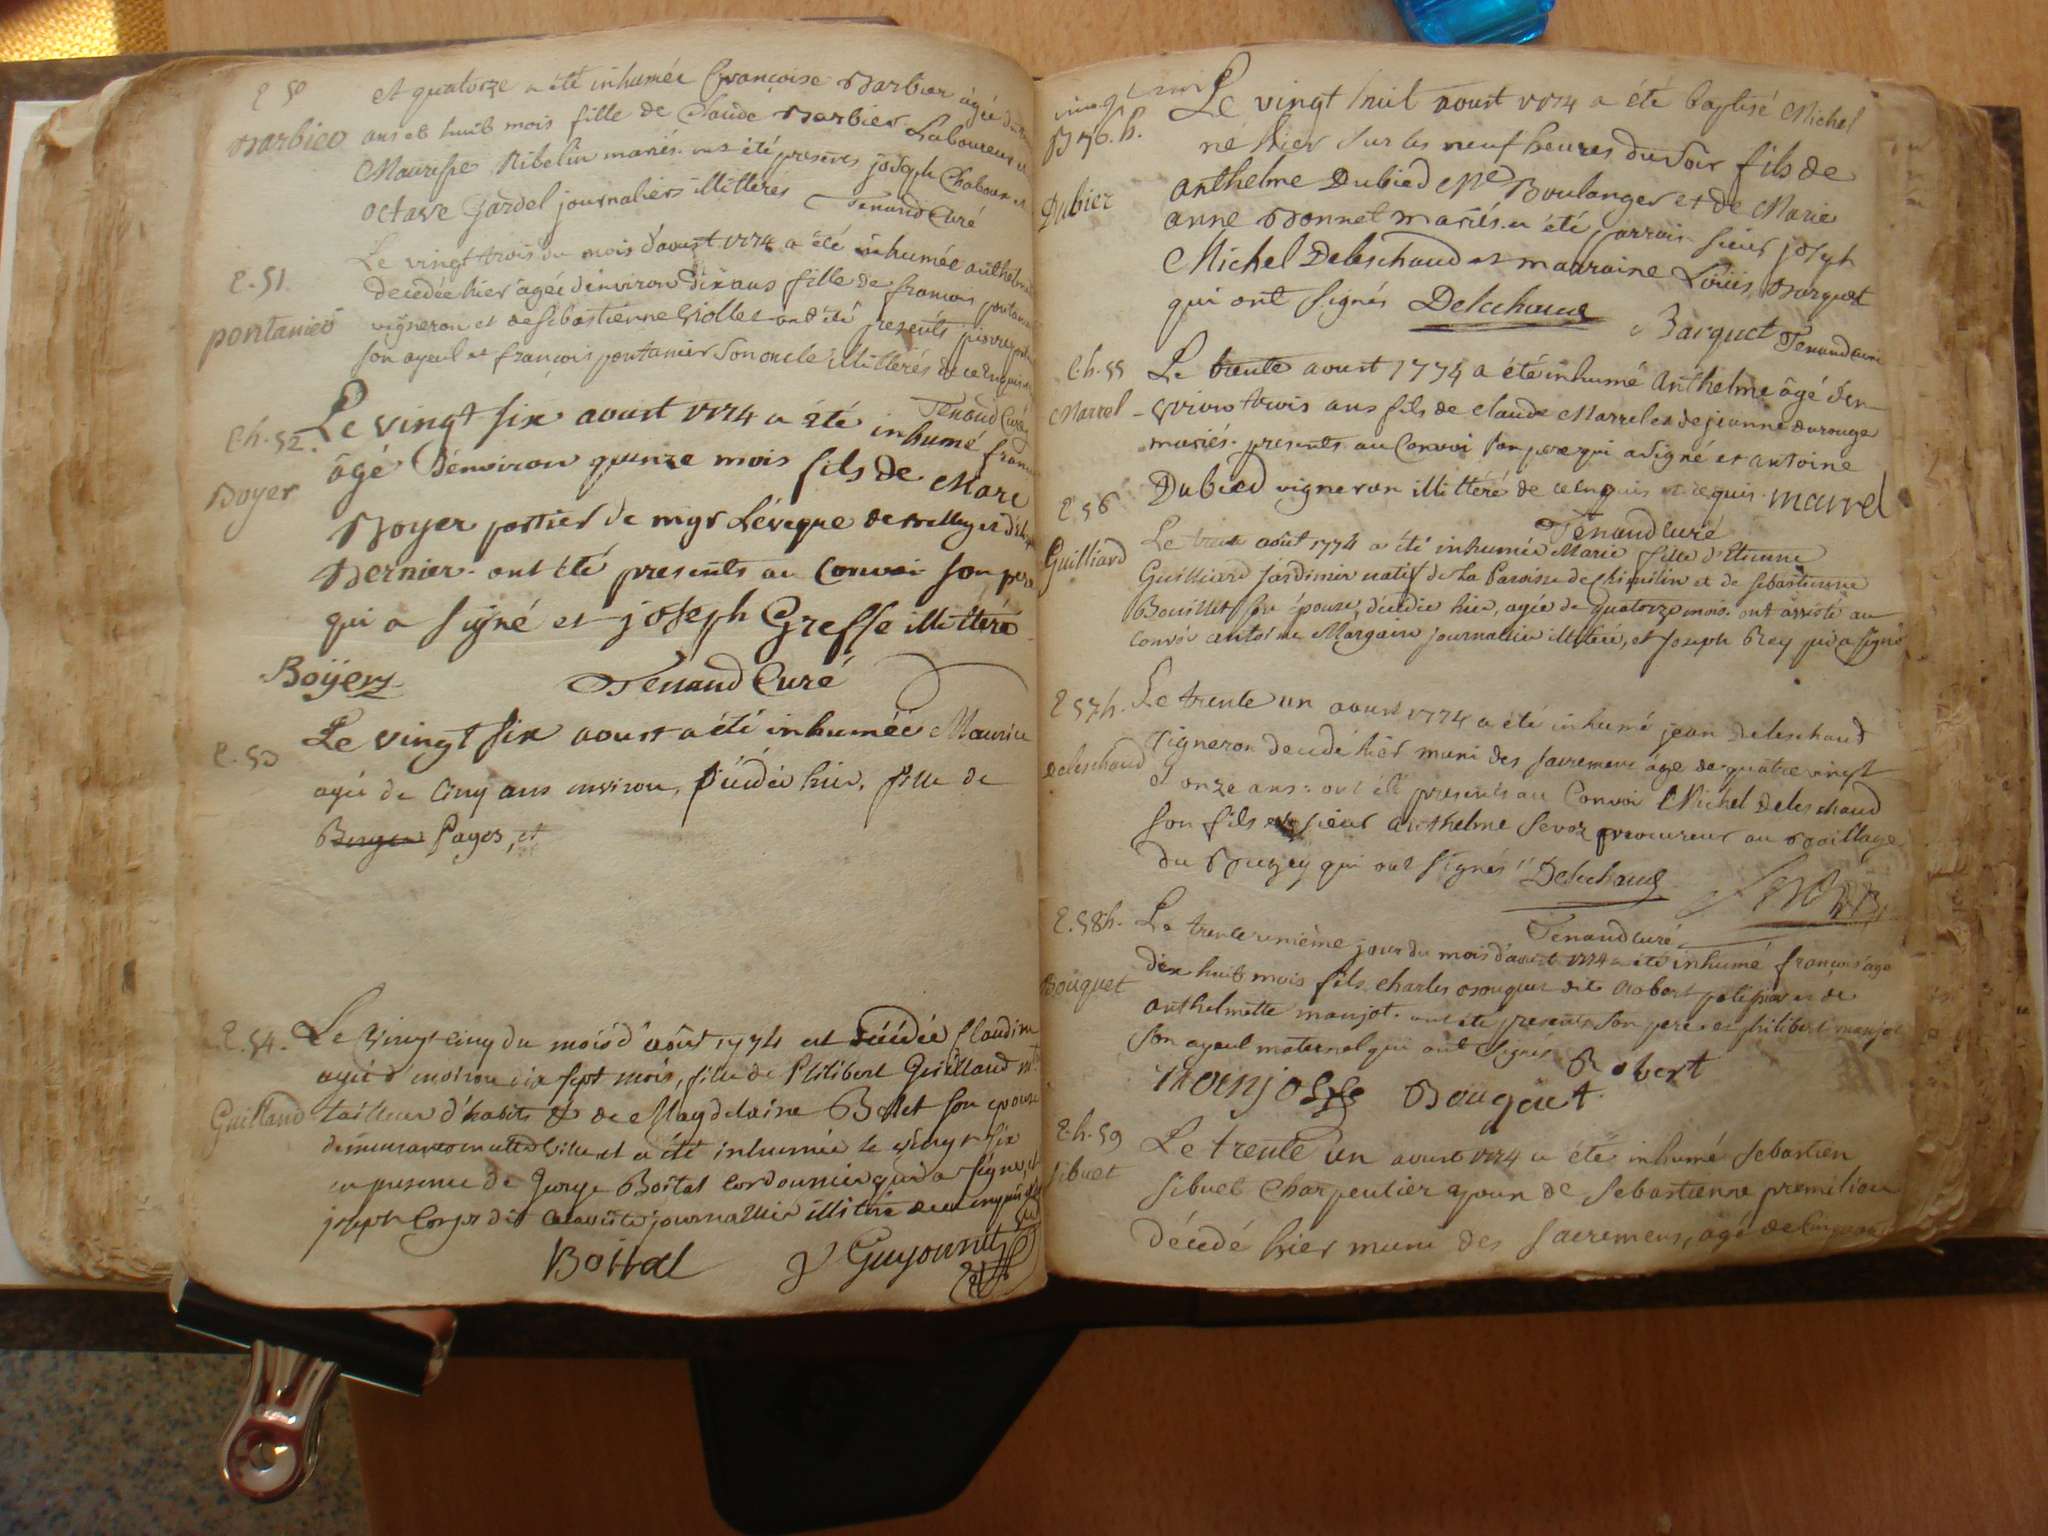 E 50
Barbier
et quatorze a été inhumée Françoise Barbier âgée
ans et huit mois fille de Claude Barbier Laboureur et
Ribelin mariés. ont été présens joseph Chaboux et
octave Jardel journaliers illitteres Tenand Curé
E. 51.
pontanier
Le vingt trois du mois d'aoust 1774 a été inhumée anthel
decedée hier âgée d'environ dix ans fille de francois pontan
vigneron et de sebastienne Giollet ont été presents pierre
son ayeul et françois pontanier son oncle illitterés de ce enquis
Tenand Curé
Eh. 52.
Boyer
Le vingt six aoust 1774 a été inhumé fran
âgé d'environ quinze mois fils de Marc
Boyer portier de mgr Léveque de Belley et d'
Bernier. ont été presents au Convoi son pere
qui a signé et joseph Greffe illittéré
Boÿer Tenand Curé
E. 53
Le vingt six aoust a été inhumée Maurice
agée de cinq ans environ, décédée hier, fille de
Pages, et
E. 54.
Guilland
Le vingt cinq du mois d'août 1774 est décédée Claudine
agée d'environ dix sept mois, fille de Philibert Guilland m.
tailleur d'habits & de Magdelaine Bollet son epouse
ville et a été inhumée le vingt six
en presence de George Boital Cordonnier qui a signé, et
joseph dit journallier illitéré de ce enquis
Boital Guyonnet
B 76. h.
Dubier
Le vingt huit aoust 1774 a été baptisé Michel
né hier sur les neuf heures du soir fils de
anthelme Dubied Me Boulanger et de Marie
anne Bonnet mariés. a été parrain sieur joseph
Michel Deleschaud et marraine Louise Barquet
qui ont signés Delechaud
Barquet Tenand curé
Eh. 55
Marrel
Le trente aoust 1774 a été inhumé Anthelme âgé den-
viron trois ans fils de claude Marrel et de jeanne durouge
mariés. presents au Convoi son pere qui a signé et antoine
Dubied vigneron illittéré de ce enquis et requis. marrel
Tenand Curé
E 56
Guilliard
Le trente août 1774 a été inhumée Marie fille d'Etienne
Guilliard Jardinier natif de la Paroisse de Chimilin et de sebastienne
Bouillet son épouse, décédée hier, agée de quatorze mois. ont assisté au
convoi antoine Margain journallier illitéré, et Joseph Rey qui a signé
E 57 h.
Deleschaud
Le trente un aoust 1774 a été inhumé jean Deleschaud
vigneron decedé hier muni des sacremens âgé de quatre vingt
onze ans: ont été presents au Convoi Michel Deleschaud
son fils et sieur anthelme Sevoz procureur au Bailliage
du Bugey qui ont signés Delechaud Sevoz
Tenand curé
E. 58 h.
Bouquet
Le trente unième jour du mois d'aoust 1774 a été inhumé françois agé
dix huit mois fils charles Bouquet dit Robert et de
anthelmette monjot. ont été presents son pere et philibert monjot
son ayeul maternel qui ont signés Robert
monjot Bouquet
E. h. 59
sibuet
Le trente un aoust 1774 a été inhumé sebastien
sibuet charpentier epoux de sebastienne premilion
décédé hier muni des sacremens, âgé de cinquante